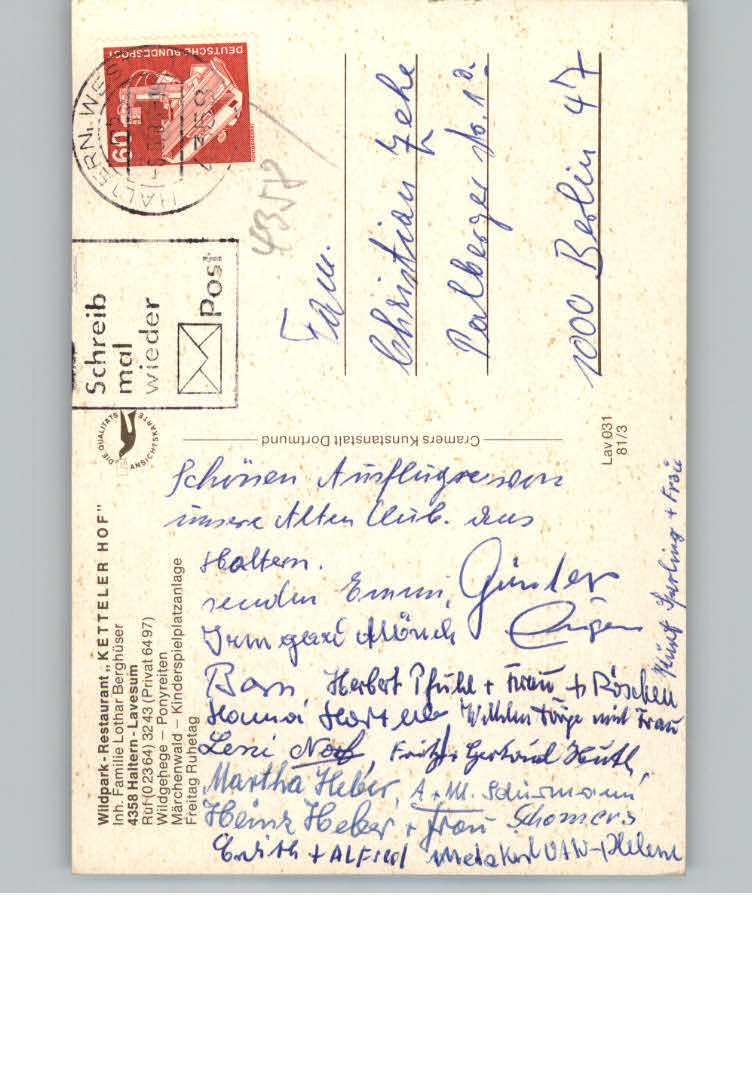 Wildpark-Restaurant „KETTELER HOF"
Inh. Familie Lothar Berghüser
4358 Haltern-Lavesum
Ruf (0 23 64) 32 43 (Privat 64 97)
Wildgehege – Ponyreiten
Märchenwald – Kinderspielplatzanlage
Freitag Ruhetag
DIE QUALITÄTS
ANSICHTSKARTE
Cramers Kunstanstalt Dortmund
Lav. 031
81/3
Schreib
mal
wieder
Post
HALTERN, WES
DEUTSCHE BUNDESPOST
60
4358
Fam.
Christian Zehe
Str. 1d.
1000 Berlin 47
Schönen
unsere Alten Club. aus
Haltern.
senden Emmi, Günter
Irmgard Mönch Eugen
Born Herbert Pfuhl + Frau + Röschen
Wilhelm mit Frau
Leni Fritz + Gertrud Huth,
Martha Heber, A + M. Schürmann
Heinz Heber + Frau Schomers
+ Alfred
+ Frau